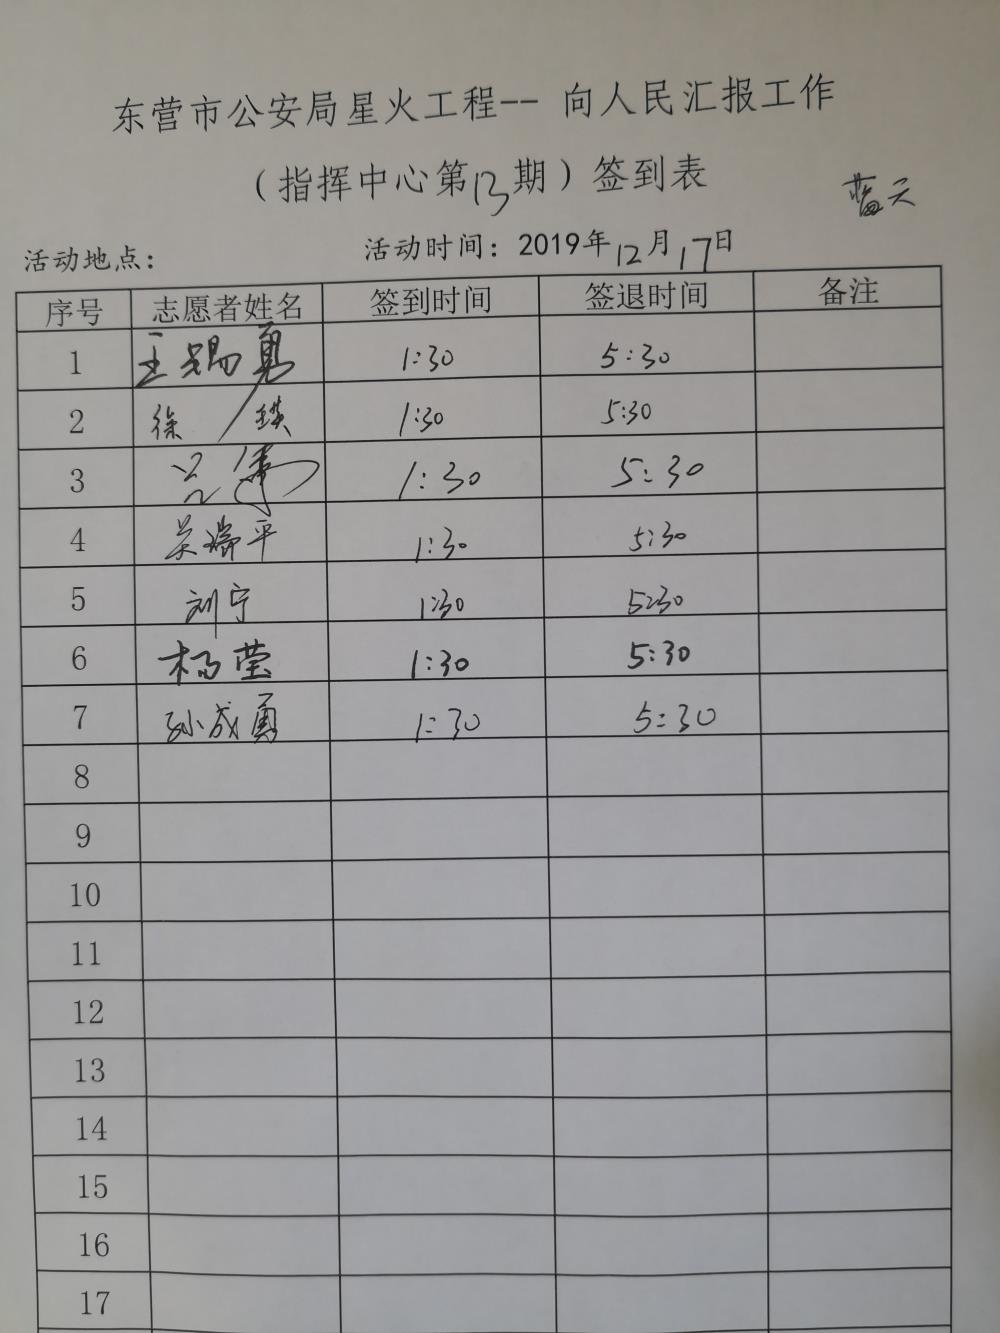 东营市公安局星火工程-- 向人民汇报工作
（指挥中心第13期）签到表
蓝天
活动地点： 活动时间：2019年12月17日
序号 志愿者姓名 签到时间 签退时间 备注
1 王锡勇 1:30 5:30
2 徐瑛 1:30 5:30
3 1:30 5:30
4 吴瑞平 1:30 5:30
5 刘宁 1:30 5:30
6 杨莹 1:30 5:30
7 孙成勇 1:30 5:30
8
9
10
11
12
13
14
15
16
17